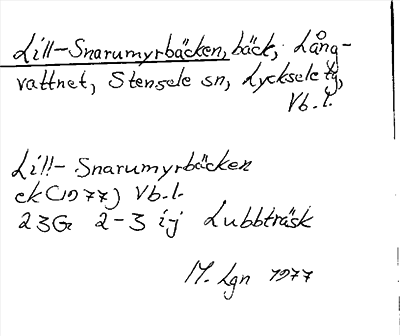 Lill-Snarumyrbäcken, bäck, Lång-
vattnet, Stensele sn, Lycksele tg,
Vb.l.
Lill-Snarumyrbäcken
ek (1977) Vb.l.
23G 2-3 ij Lubbträsk
M. Lgn 1977